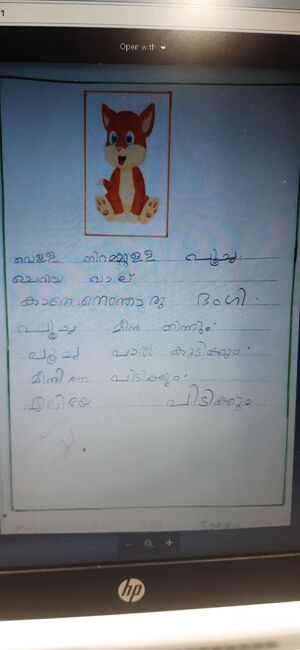 1
Open with
വെള്ള നിറമുള്ള പൂച്ച.
ചെറിയ വാല്
കാണാനെന്തൊരു ഭംഗി.
പൂച്ച മീൻ തിന്നും.
പൂച്ച പാൽ കുടിക്കും.
മീനിനെ പിടിക്കും.
എലിയേ പിടിക്കും
hp